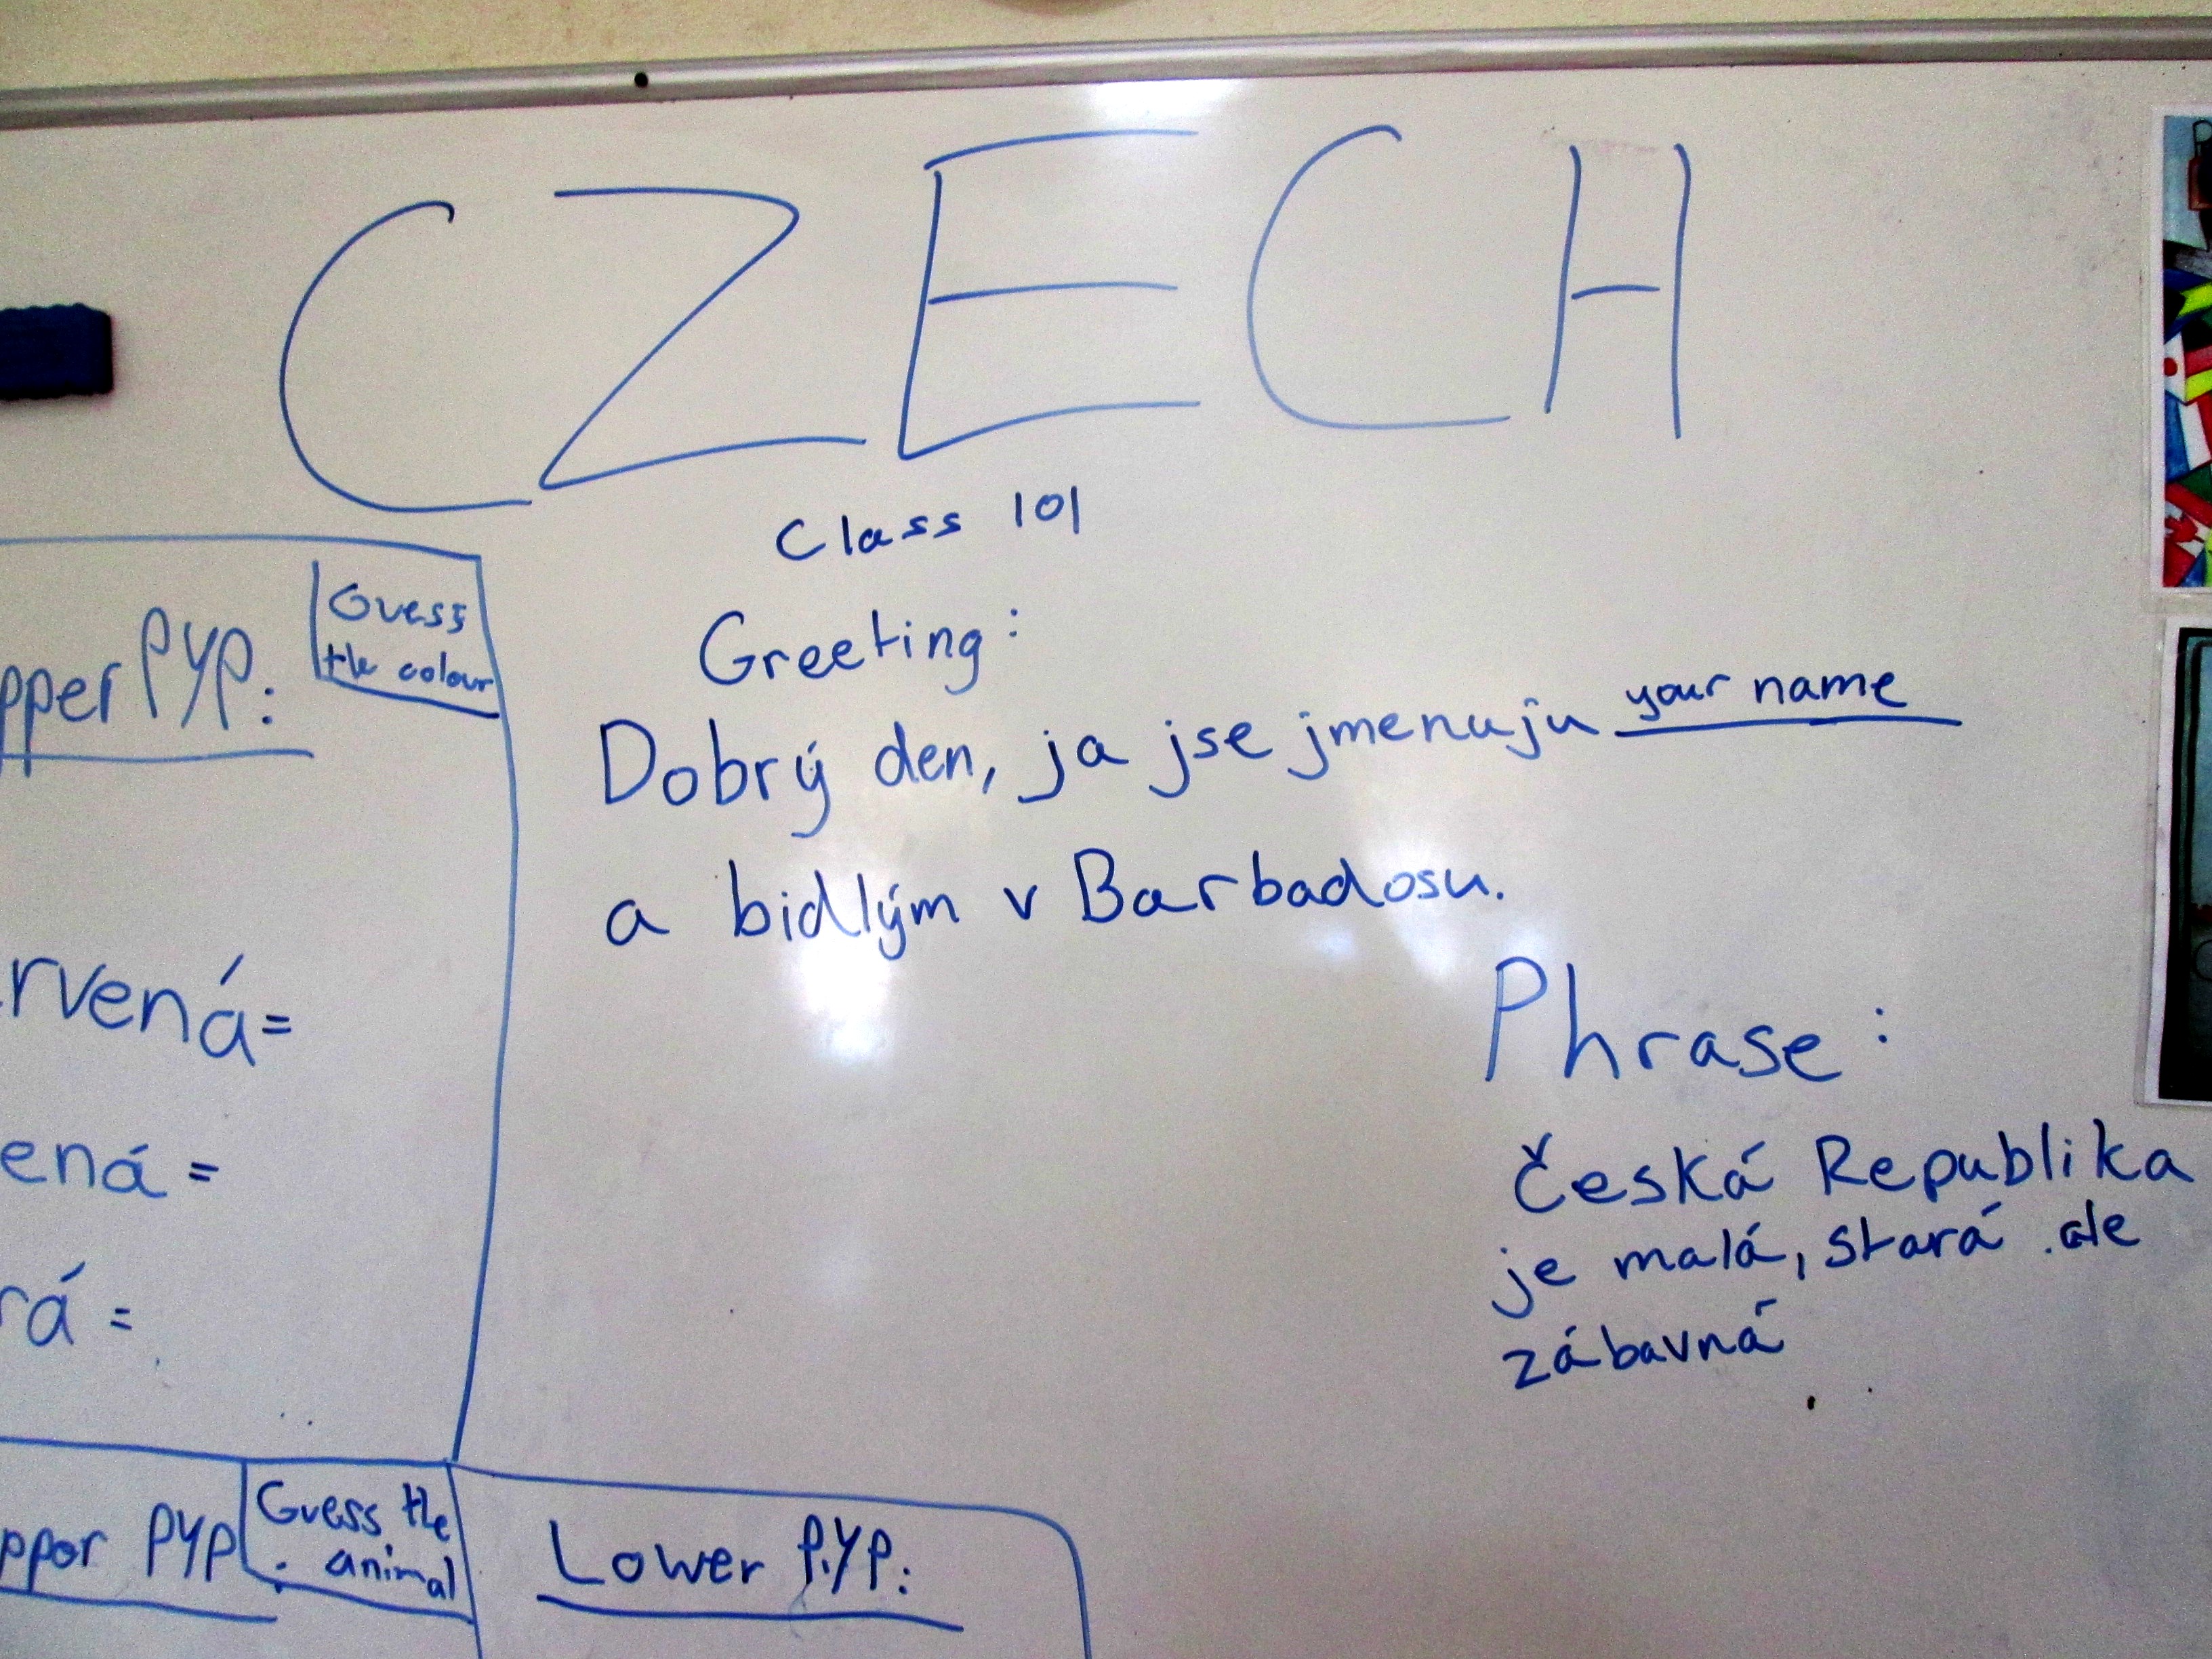 CZECH
Class 101
Greeting:
Dobrý den, ja jse jmenuju your name
a bidlým v Barbadosu.
Phrase:
Česká Republika
je malá, stará ale
zábavná
pper PYP:
Guess
the colour
rvená=
ená =
rá =
ppor PYP
Guess the
animal
Lower PYP: